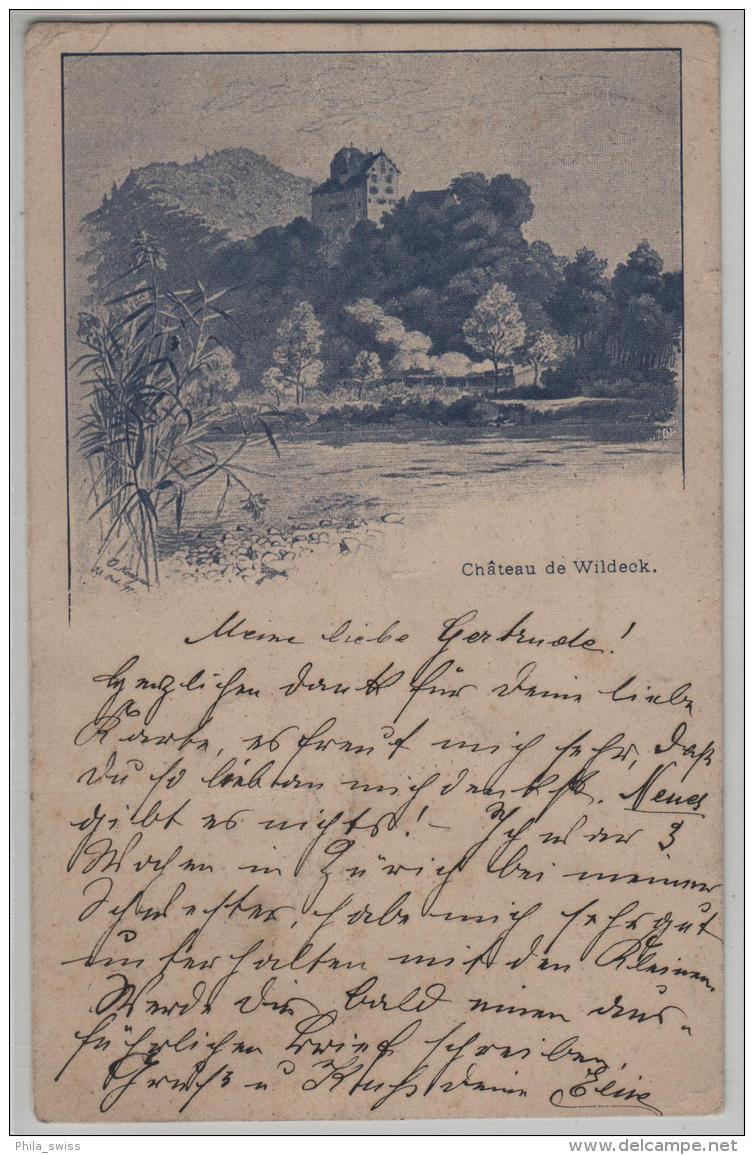 Château de Wildeck.
Meine liebe Gertrude!
Herzlichen Dank für Deine liebe
Karte, es freut mich sehr, daß
Du so lieb an mich denkst. Neues
gibt es nichts! – Ich war 3
Wochen in Zürich bei meiner
Schwester, habe mich sehr gut
unterhalten mit den Kleinen.
Werde dir bald einen aus-
führlichen Brief schreiben.
Gruß u Kuß deine
Phila_swiss
www.delcampe.net